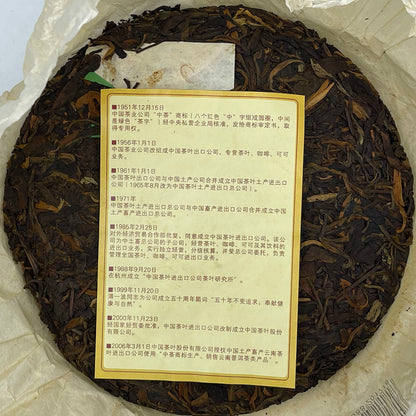 ■1951年12月15日
中国茶业公司“中茶”商标(八个红色“中”字组成圆圈,中间
是绿色“茶字”)经中央私营企业局核准,发给商标审定书,取
得专用权。
■1956年1月1日
中国茶业公司改组成中国茶叶出口公司,专营茶叶、咖啡、可可
业务。
■1961年1月1日
中国茶叶出口公司与中国土产出口公司合并成立中国茶叶土产进出口
公司(1965年8月改为中国茶叶土产进出口总公司)。
■1971年
中国茶叶土产进出口总公司与中国畜产进出口公司合并成立中国
土产畜产进出口总公司。
■1985年2月25日
对外经济贸易合作部批复,同意成立中国茶叶进出口公司。该公
司为中土畜总公司的子公司,经营茶叶、咖啡、可可及其饮料的
进出口业务,实行独立经营,分级核算,并受总公司委托,负责
管理全国茶叶、咖啡、可可进出口业务。
■1988年9月20日
在杭州成立“中国茶叶进出口公司茶叶研究所”。
■1999年11月20日
薄一波同志为公司成立五十周年题词“五十年不变追求,奉献健
康与自然”。
■2000年11月23日
经国家经贸委批准,中国茶叶进出口公司改制成立中国茶叶股份
有限公司。
■2006年3月1日中国茶叶股份有限公司授权中国土产畜产云南茶
叶进出口公司使用“中茶商标生产、销售云南普洱茶类产品”。